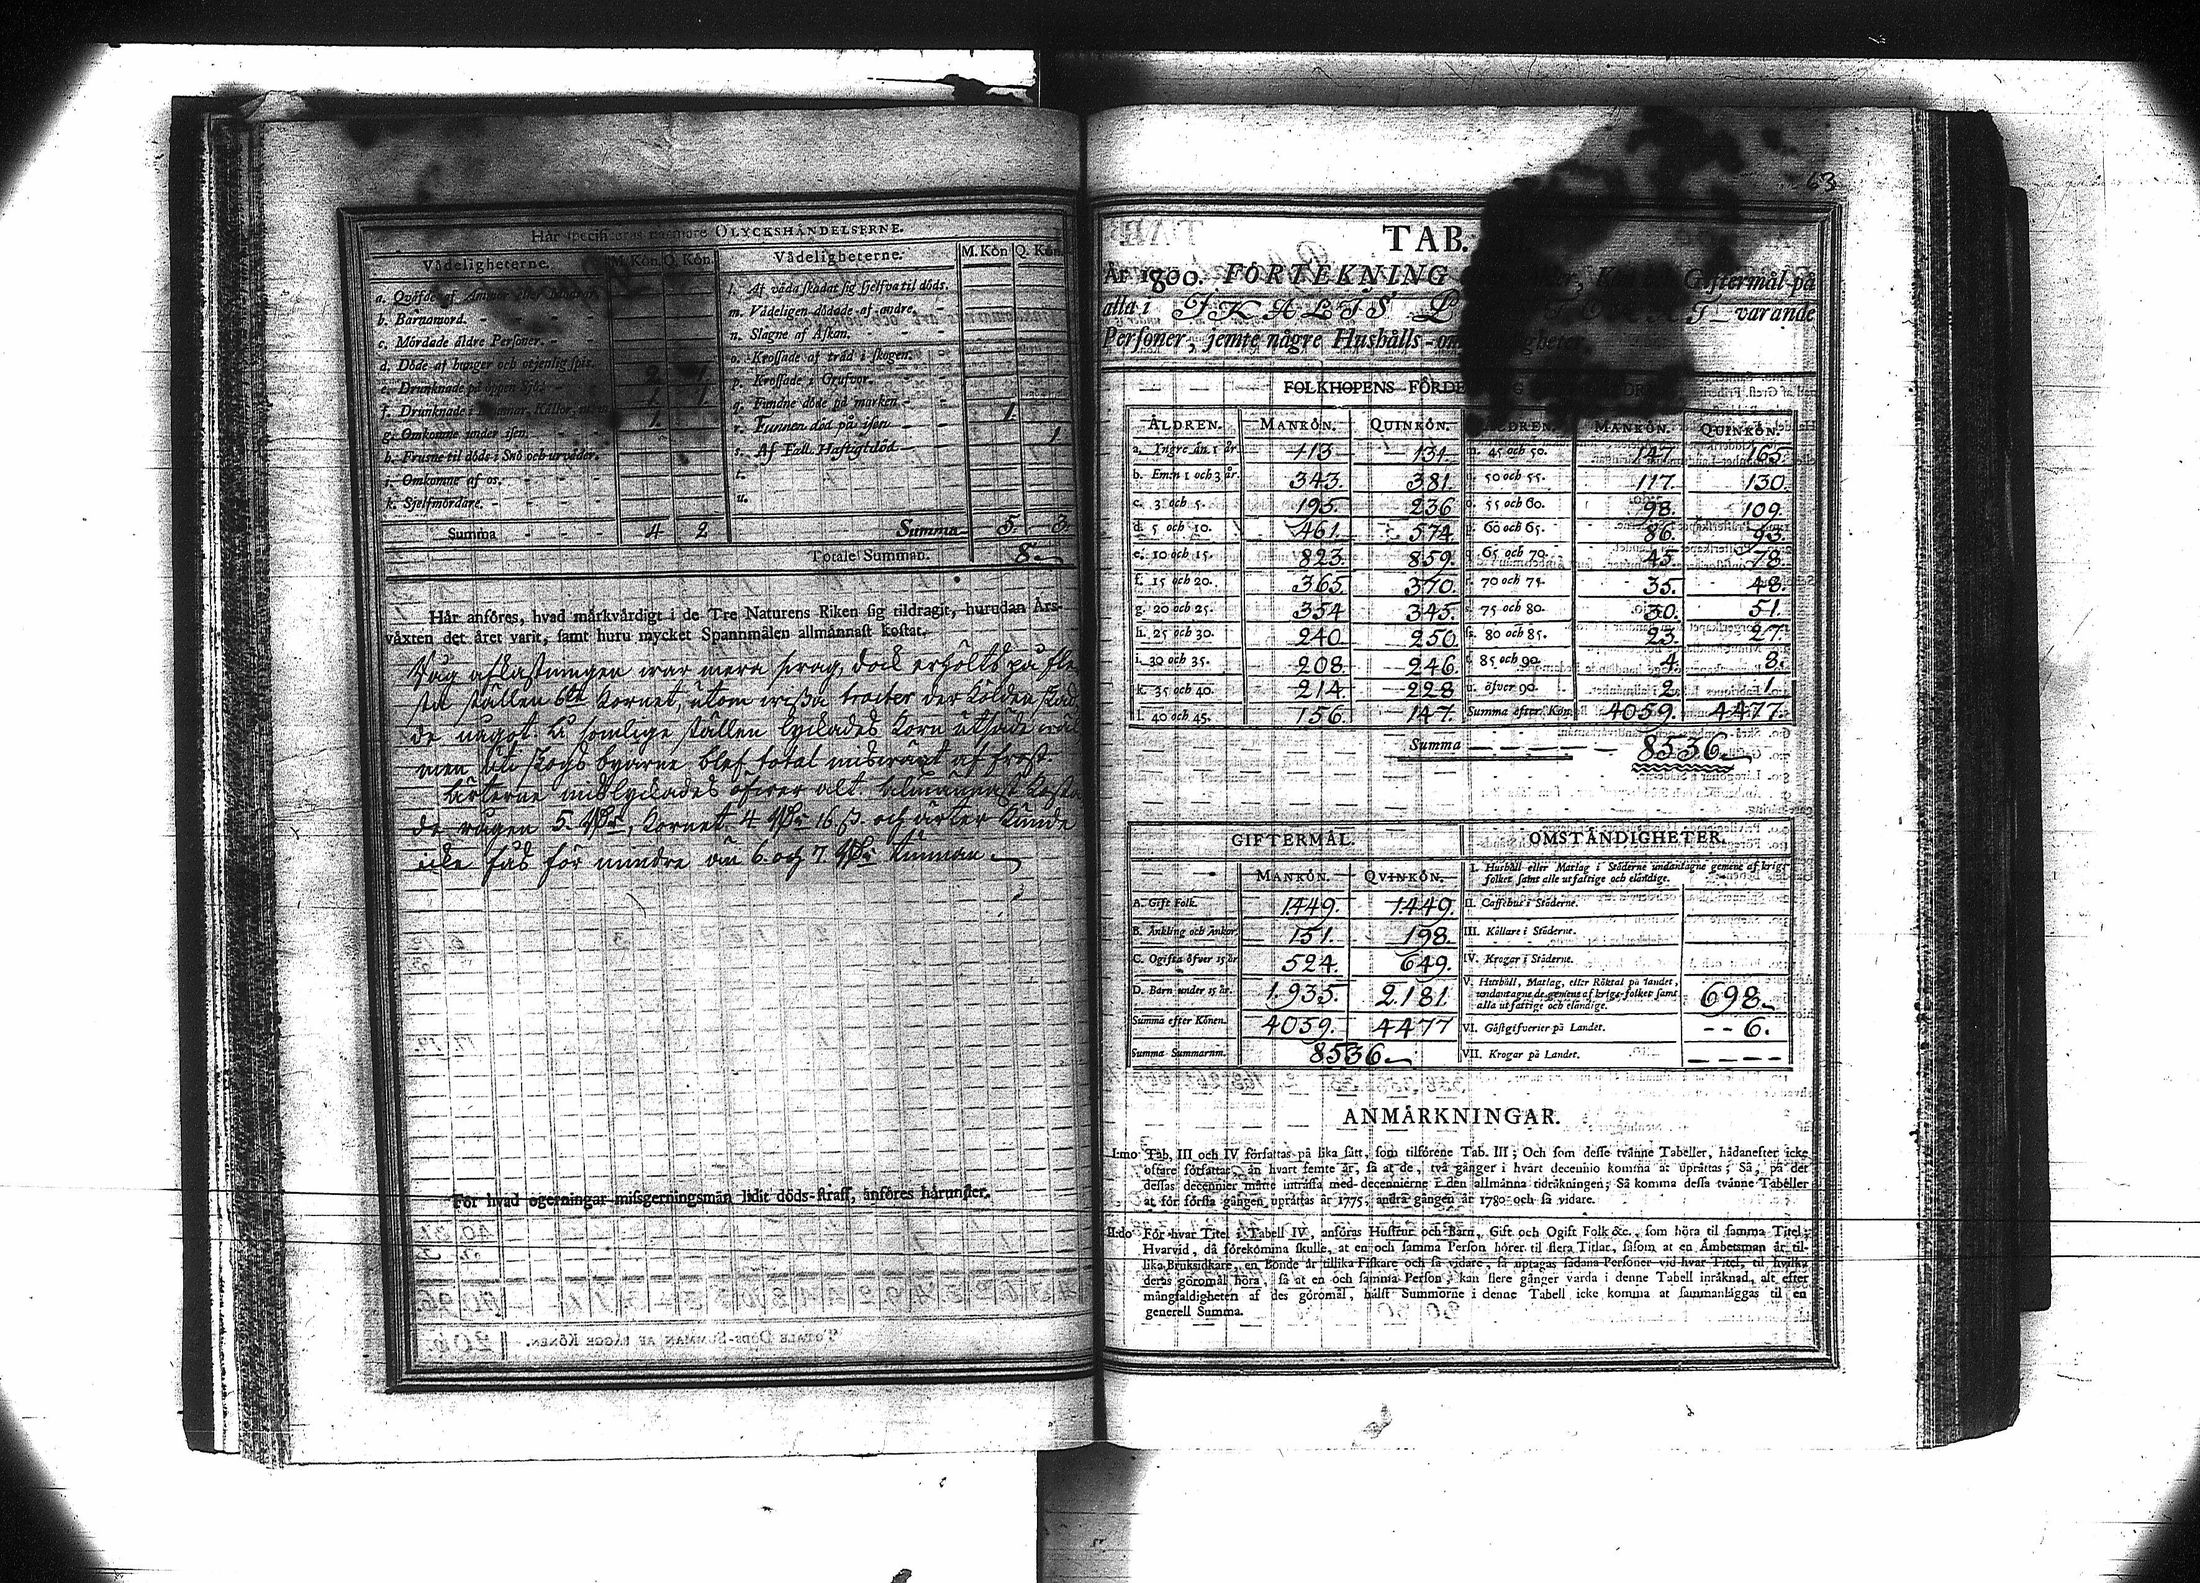 Hår specificeras närmare OLYCKSHÅNDELSERNE.
Vådeligheterne. M. Kön. Q. Kön. Vådeligheterne. M. Kön Q. Kön
a. Qväfde af Ammor eller Mödrar. l. Af våda skadat sig sjelfva til döds.
b. Barnamord. m. Vådeligen dödade af andre.
c. Mördade äldre Personer. n. Slagne af Åskan.
d. Döde af hunger och otjenlig spis. o. Krossade af träd i skogen.
e. Drunknade på öppen Sjö. 2 1 p. Krossade i Grufvor.
f. Drunknade i Källor, 1 1 q. Fundne döde på marken
g. Omkomne under isen. 1. r. Funnen död på isen 1.
h. Frusne til döds i Snö och urväder. s. Af Fall. Hastigt död 1
i. Omkomne af os. t.
k. Sjelfmördare. u.
Summa 4 2 Summa 5. 3.
Totale Summan. 8.
Hår anföres, hvad märkvärdigt i de Tre Naturens Riken sig tildragit, hurudan Års-
växten det året varit, samt huru mycket Spannmålen allmännast kostat.
afkastningen war mera swag, dock erhölts på fle
sta ställen 6te Kornet, utom wissa tracter der Kölden skad
de något. Å somlige ställen lyckades Korn utsäde wäl
men uti Skogs byarne blef total miswäxt af frost.
Ärterne misslyckades öfwer alt. Allmännast kosta
de rågen 5. Rdr, Kornet 4 Rdr 16 ß. och ärter kunde
icke fås för mindre än 6. och 7. Rdr tunnan.
För hvad ogerningar missgerningsmän lidit döds-straff, anföres hårunder.
63
TAB.
År 1800. FÖRTEKNING Giftermål på
alla i IKALIS varande
Personer, jemte någre Hushålls-
FOLKHOPENS FÖRDE
ÅLDREN. MANKÖN. QUINKÖN. ÅLDREN. MANKÖN. QUINKÖN.
a. Ingre än 1 år 113 131. m. 45 och 50. 147 165.
b. Emn 1 och 3 år 343. 381. n. 50 och 55. 117. 130.
c. 3 och 5. 195. 236 o. 55 och 60. 98. 109.
d. 5 och 10. 461. 574 p. 60 och 65. 86. 93.
e. 10 och 15. 823. 859. q. 65 och 70. 45. 78.
f. 15 och 20. 365. 370. r. 70 och 75. 35. 48.
g. 20 och 25. 354 345. s. 75 och 80. 30. 51.
h. 25 och 30. 240 250. 80 och 85. 23. 27.
i. 30 och 35. 208 246. t. 85 och 90. 4. 8.
k. 35 och 40. 214 228 u. öfver 90. 2. 1.
l. 40 och 45. 156. 147. Summa efter Kön. 4059. 4477.
Summa 8536.
GIFTERMÅL. OMSTÅNDIGHETER.
MANKÖN. QVINKÖN.
I. Hushåll eller Matlag i Städerne undantagne gemene af krigs
folket samt alle utfattige och eländige.
A. Gift Folk. 1449. 1449. II. Caffehus i Städerne.
B. Änkling och Änkor. 151. 198. III. Källare i Städerne.
C. Ogifta öfver 15 år 524. 649. IV. Krogar i Städerne.
D. Barn under 15 år. 1.935. 2.181. V. Hushåll, Matlag, eller Röktal på landet,
undantagne de gemene af krigs-folket samt
alla utfattige och eländige. 698
Summa efter Könen. 4059. 4477 VI. Gästgifverier på Landet. 6.
Summa Summarum. 8536. VII. Krogar på Landet.
ANMÄRKNINGAR.
I:mo Tab. III och IV författas på lika sätt, som tilförene Tab. III; Och som desse tvänne Tabeller, hädanefter icke
oftare författas, än hvart femte år, så at de, två gånger i hvart decennio komma at uprättas; Så, på det
dessas decennier måtte inträffa med decennierne i den allmänna tidräkningen; Så komma dessa tvänne Tabeller
at för första gången uprättas år 1775, andra gången år 1780 och så vidare.
II:do För hvar Titel i Tabell IV, anföras Hustrur och Barn, Gift och Ogift Folk &c., som höra til samma Titel;
Hvarvid, då förekomma skulle, at en och samma Person hörer til flera Titlar, såsom at en Ämbetsman är til-
lika Bruksidkare, en Bonde är tillika Fiskare och så vidare, så uptagas sådana Personer vid hvar Titel, til hvilka
deras göromål höra, så at en och samma Person, kan flere gånger varda i denne Tabell inräknad, alt efter
mångfaldigheten af des göromål, hälst Summorne i denne Tabell icke komma at sammanläggas til en
generell Summa.